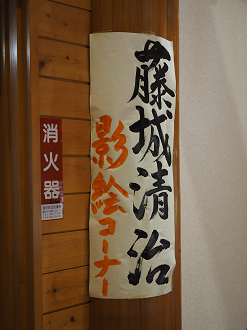 藤城清治
影絵コーナー
消火器